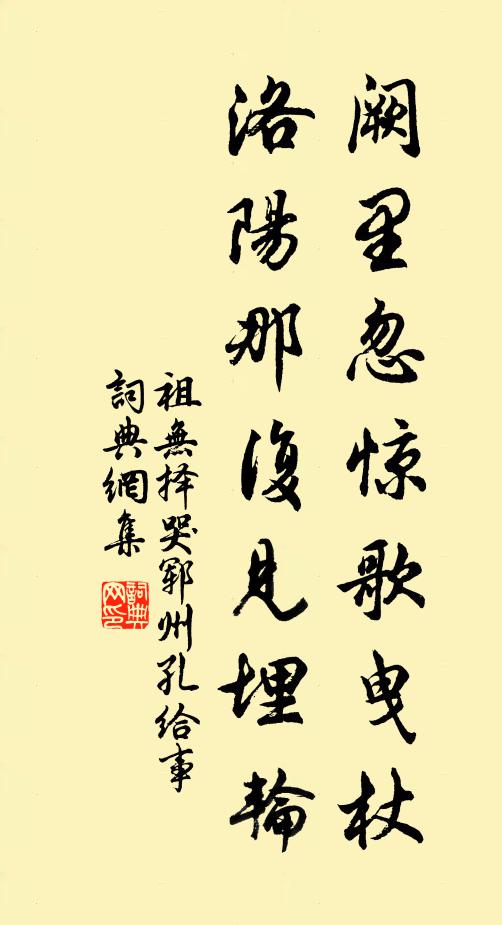 阙里忽惊歌曳杖
洛陽那復見埋輪
祖無择哭鄆州孔给事
詞典網集
詞典网印